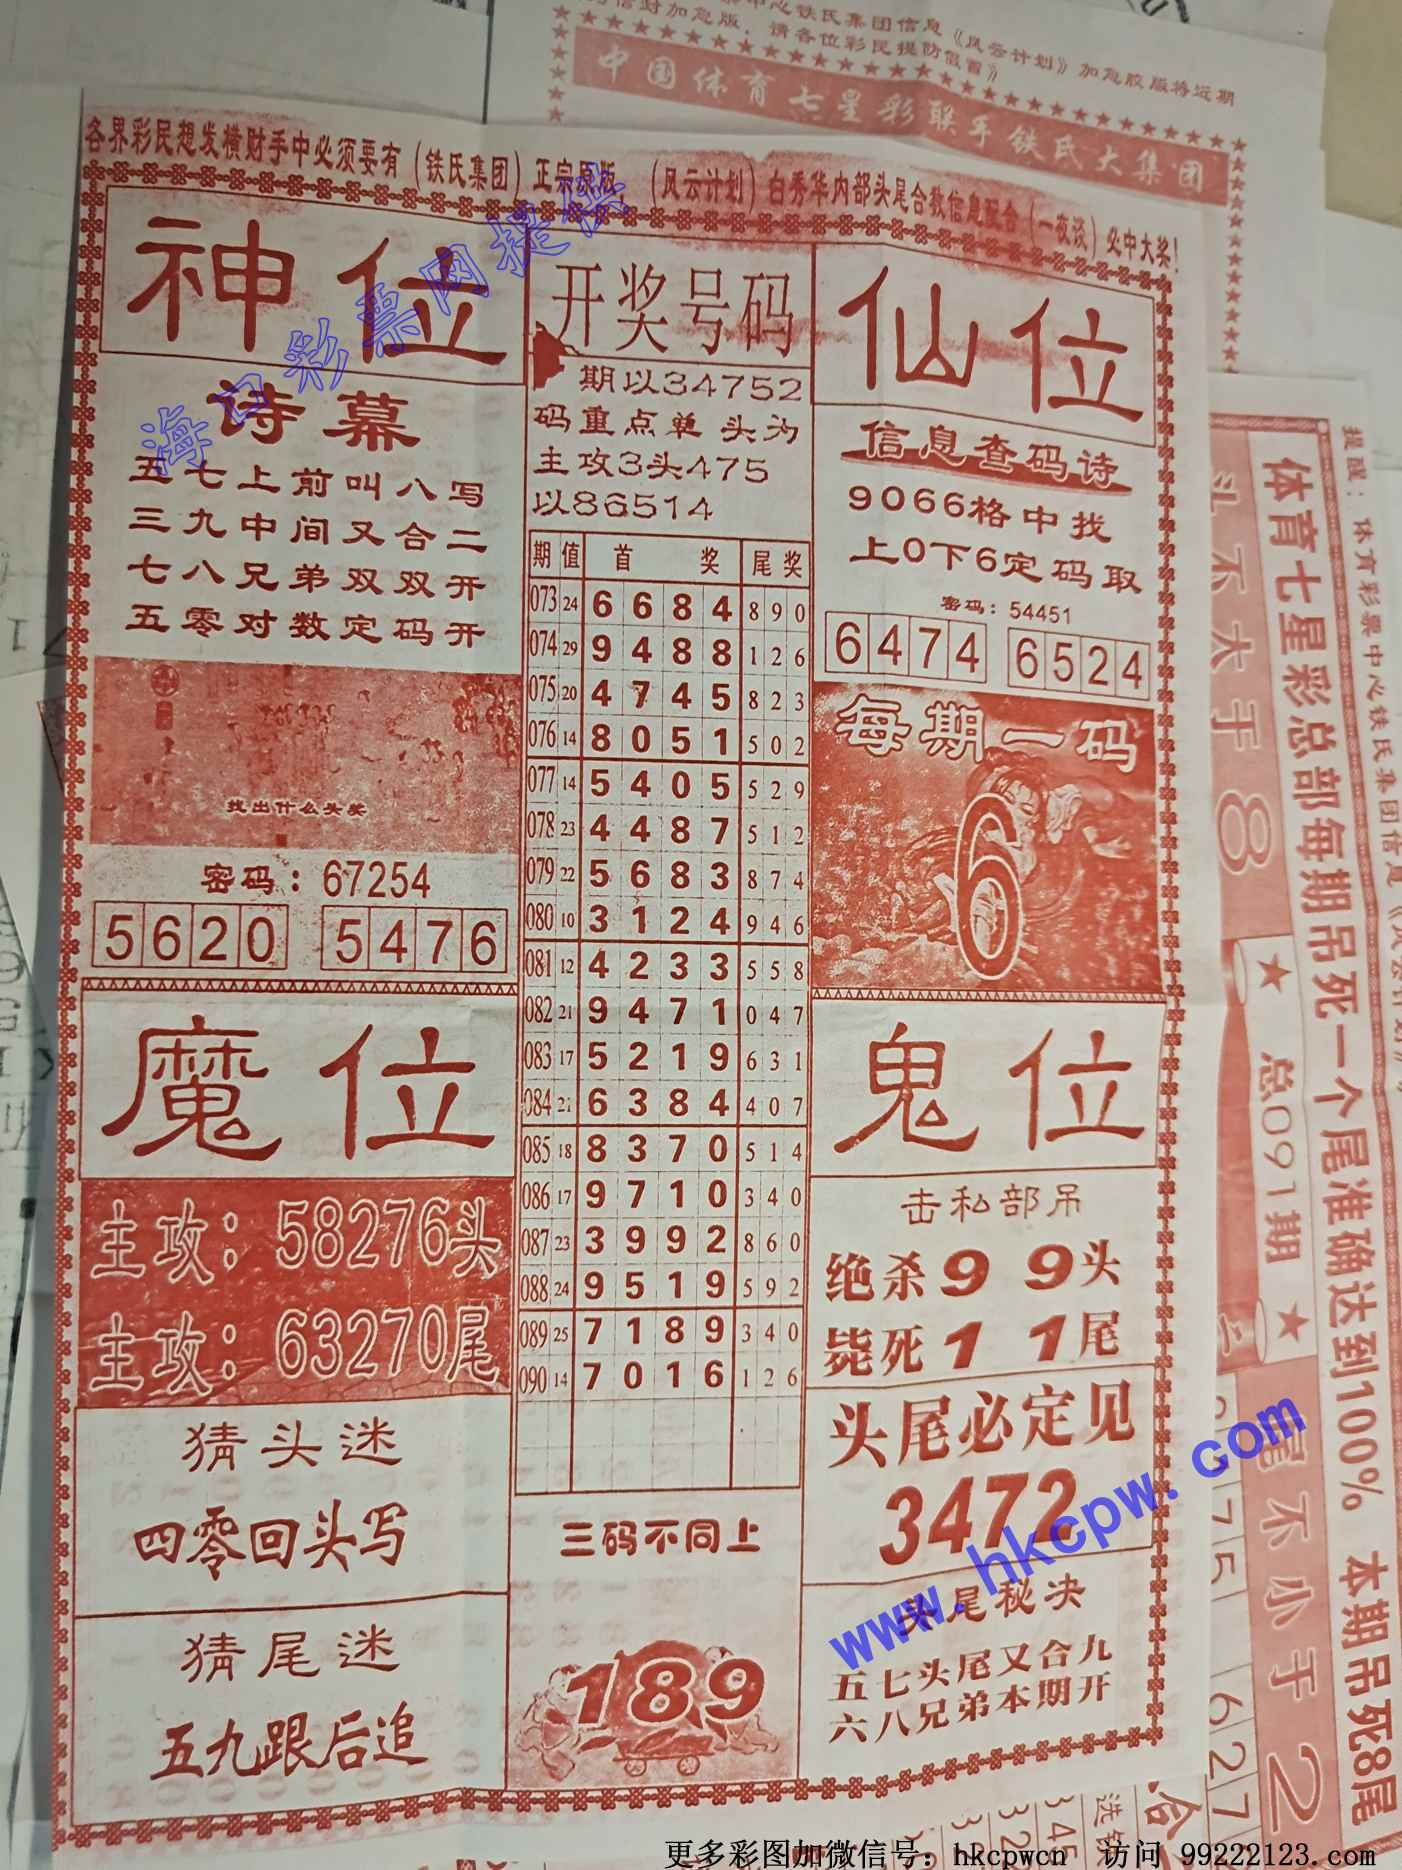 中国体育七星彩联手铁氏大集团
各界彩民想发横财手中必须要有(铁氏集团)正宗原版,(风云计划)白秀华内部头尾合数信息配合(一夜谈)必中大奖!
神位
诗幕
五七上前叫八写
三九中间又合二
七八兄弟双双开
五零对数定码开
找出什么头奖
密码:67254
5620 5476
开奖号码
期以34752
码重点单头为
主攻3头475
以86514
期 值 首 奖 尾 奖
073 24 6 6 8 4 8 9 0
074 29 9 4 8 8 1 2 6
075 20 4 7 4 5 8 2 3
076 14 8 0 5 1 5 0 2
077 14 5 4 0 5 5 2 9
078 23 4 4 8 7 5 1 2
079 22 5 6 8 3 8 7 4
080 10 3 1 2 4 9 4 6
081 12 4 2 3 3 5 5 8
082 21 9 4 7 1 0 4 7
083 17 5 2 1 9 6 3 1
084 21 6 3 8 4 4 0 7
085 18 8 3 7 0 5 1 4
086 17 9 7 1 0 3 4 0
087 23 3 9 9 2 8 6 0
088 24 9 5 1 9 5 9 2
089 25 7 1 8 9 3 4 0
090 14 7 0 1 6 1 2 6
三码不同上
189
仙位
信息查码诗
9066格中找
上0下6定码取
密码:54451
6474 6524
每期一码
6
魔位
主攻:58276头
主攻:63270尾
猜头迷
四零回头写
猜尾迷
五九跟后追
鬼位
击私部吊
绝杀9 9头
毙死1 1尾
头尾必定见
3472
头尾秘决
五七头尾又合九
六八兄弟本期开
体育七星彩总部每期吊死一个尾准确达到100% 本期吊死8尾
头不大于8
★总091期★
尾不小于2
海口彩票网提供
www.hkcpw.com
更多彩图加微信号:hkcpwcn 访问 99222123.com